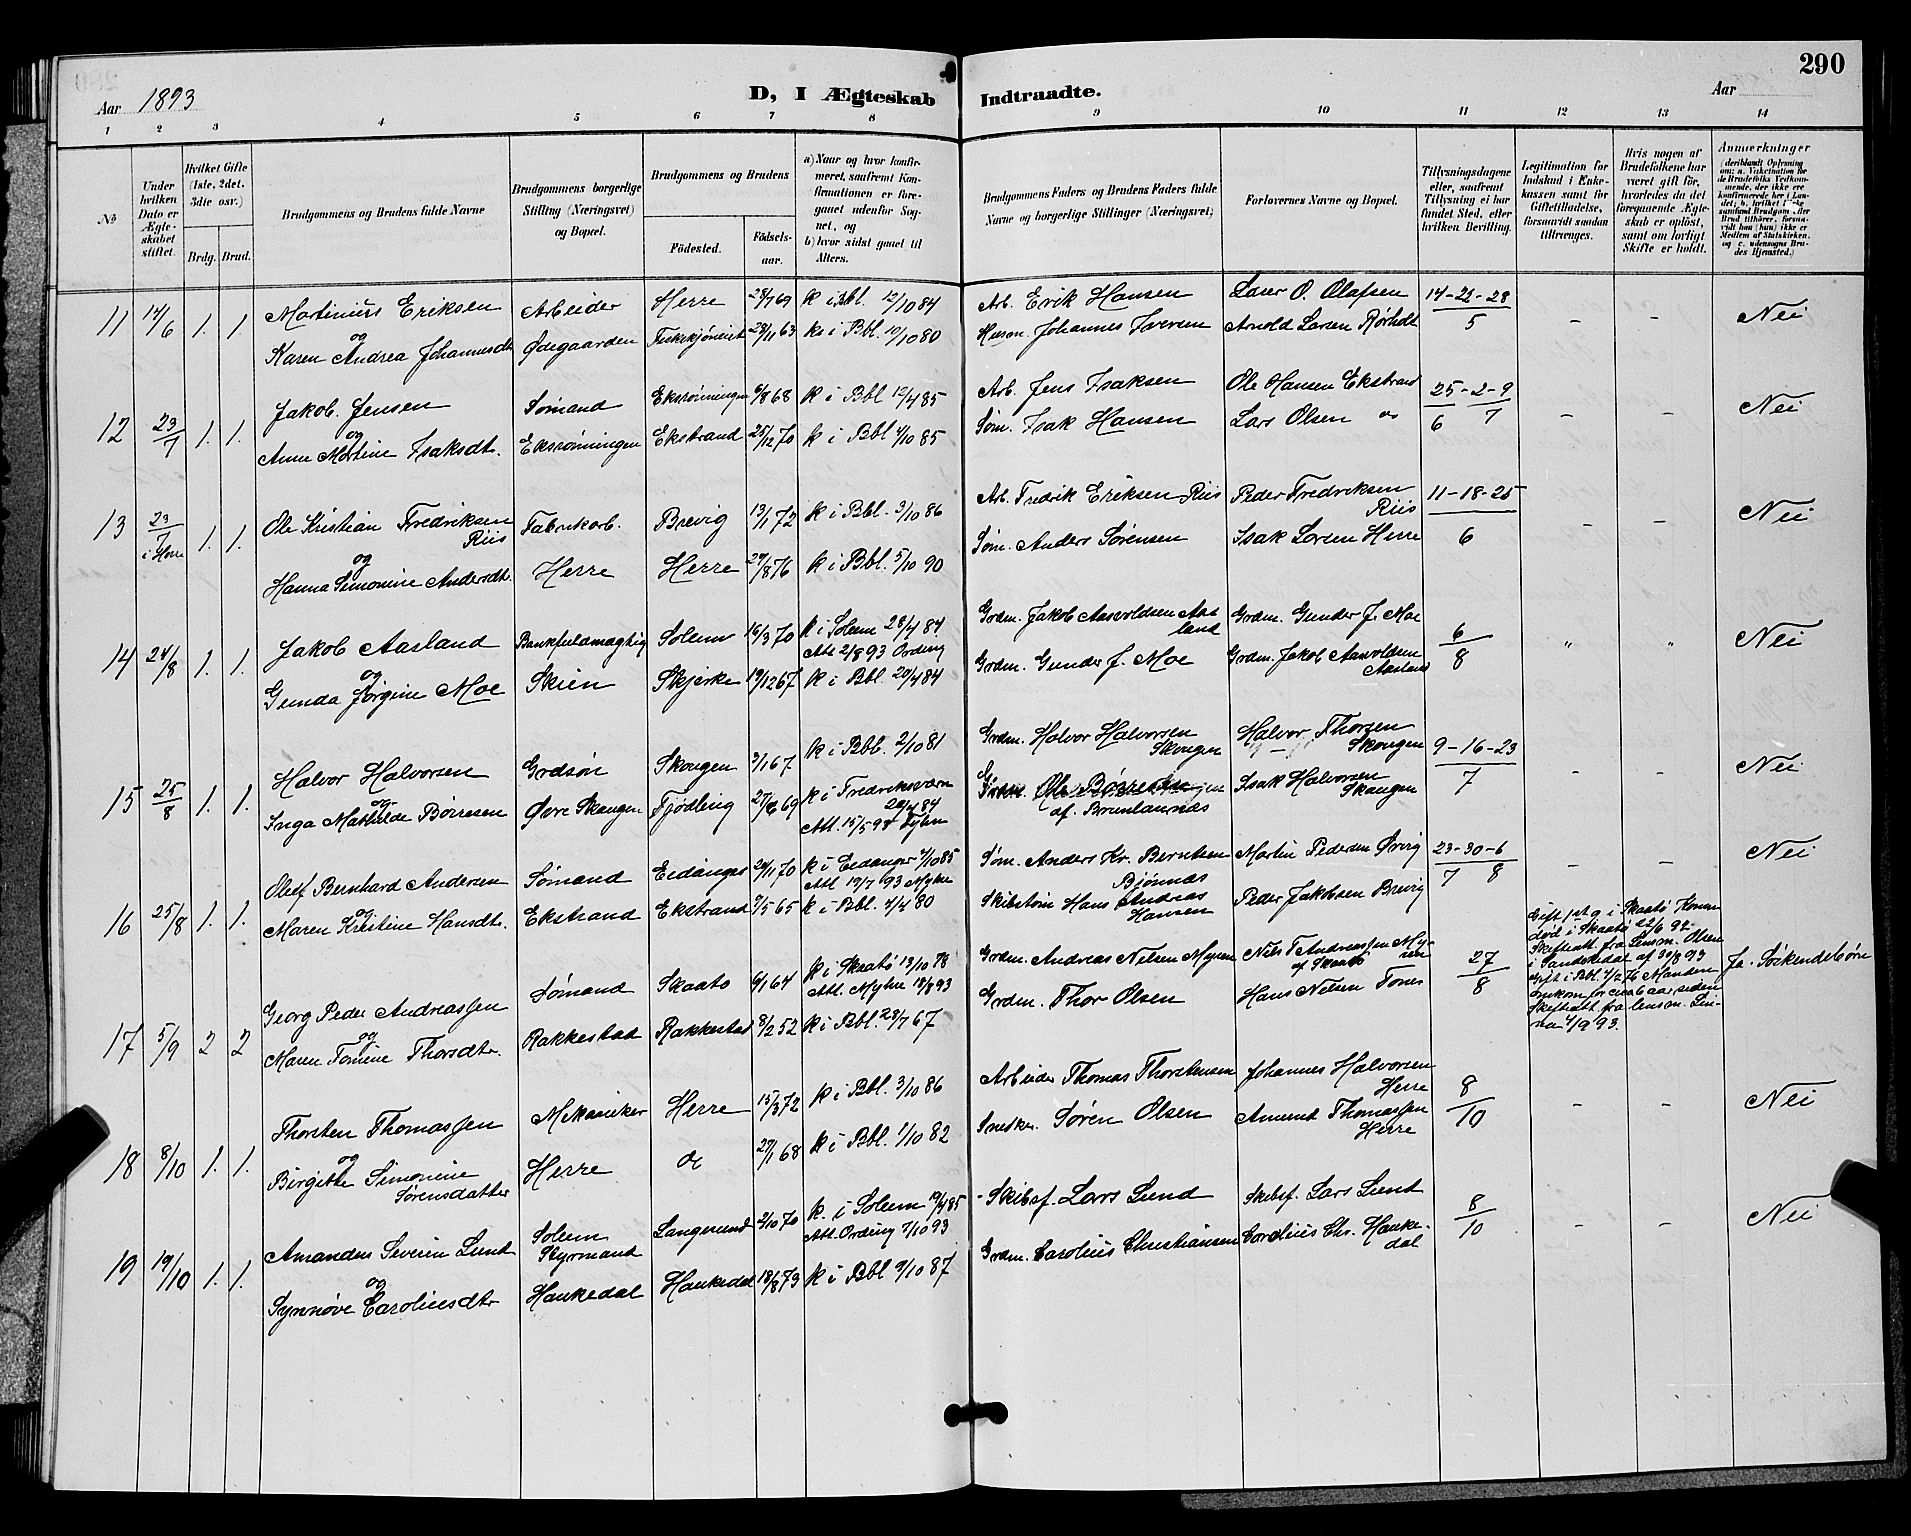 290
Aar 1893
D, I Ægteskab Indtraadte.
Aar
1 2 3 4 5 6 7 8 9 10 11 12 13 14
No
Under hvilken Dato er Ægteskabet stiftet.
Hvilket Gifte (1ste, 2det, 3die osv.)
Brdg. Brud.
Brudgommens og Brudens fulde Navne
Brudgommens borgerlige Stilling (Næringsvei) og Bopæl.
Brudgommens og Brudens
Födested. Födselsaar.
a) Naar og hvor konfirmeret, saafremt Konfirmationen er foregaaet udenfor Sognet, og b) hvor sidst gaaet til Alters.
Brudgommens Faders og Brudens Faders fulde Navne og borgerlige Stillinger (Næringsvei)
Forlovernes Navne og Bopæl.
Tillysningsdagene eller, saafremt Tillysning ei har fundet Sted, efter hvilken Bevilling.
Legitimation for Indskud i Enkekassen samt for Giftetilladelse, forsaavidt saadan tiltrænges.
Hvis nogen af Brudefolkene har været gift för, hvorledes da det foregaaende Ægteskab er oplöst, samt om lovligt Skifte er holdt.
Anmerkninger
11 14/6 1. 1. Martinius Eriksen Arbeider Herre 28/1 69 k i Bbl. 12/10 84 Arb. Erik Hansen Larer O. Olafsen 14-22-28 Nei
og
Karen Andrea Johannesdt Ødegaarden 28/11 63 k i Bbl. 10/10 80 Husm. Johannes Iversen Arnold Larsen Rørholt 5
12 23/7 1. 1. Jakob Jensen Sømand Eksrønningen 6/8 68 k i Bbl 12/4 85 Arb. Jens Isaksen Ole Hansen Ekstrand 25-2-9 Nei
og
Anne Martine Isaksdt. Eksrønningen Ekstrand 25/12 70 k i Bbl 4/10 85 Søm. Isak Hansen Lars Olsen 6 7
13 23/7 i Herre 1. 1. Ole Kristian Fredriksen Riis Fabrikarb. Brevig 13/1 72 k i Bbl. 3/10 86 Arb. Fredrik Eriksen Riis Peder Fredriksen Riis 11-18-25 Nei
og
Hanna Simonine Andersdt. Herre Herre 29/8 76 k i Bbl. 5/10 90 Søm. Anders Sørensen Isak Larsen Herre 6
14 24/8 1. 1. Jakob Aasland Bankfuldmægtig Solum 16/3 70 k i Solum 28/4 84 Att 2/8 93 Ording Grdm. Jakob Aasvoldsen Aasland Grdm. Gunder J. Moe 6 Nei
og
Gunda Jørgine Moe Skien Skjerke 19/12 67 k i Bbl. 20/4 84 Grdm. Gunder J. Moe Grdm. Jakob Aasvoldsen Aasland 8
15 25/8 1. 1. Halvor Halvorsen Grdsøn Skougen 3/1 67 k i Bbl. 2/10 81 Grdm. Halvor Halvorsen Skougen Halvor Thorsen Skougen 9-16-23 Nei
og
Inga Mathilde Børresen Øvre Skougen Fjødling 27/6 69 k i Fredriksværn 20/4 84 Att. 15/5 93 af. Brunlaunæs Isak Halvorsen Skougen 7
16 25/8 1. 1. Oluf Bernhard Andersen Sømand Eidanger 24/1 70 k i Eidanger 4/10 85 Att 19/7 93 Myhre Søm. Anders Kr. Berntsen Bjønnæs Martin Pedersen Øvrig 23-30-6 Nei
og
Maren Kristine Hansdt. Ekstrand Ekstrand 9/5 65 k i Bbl. 4/4 80 Skibstøm Hans Andreas Hansen Peder Jakobsen Brevig 7 8
17 5/9 2 2 Georg Peder Andreassen Sømand Skaatø 6/1 64 k i Skaatø 13/10 78 Att. Myhre 18/8 93 Grdm. Andreas Nielsen Myren Niels T Andreassen Myren af Skaatø 27 Ja. Søskendebørn
og
Maren Tomine Thorsdt. Rakkestad Rakkestad 8/2 52 k i Bbl. 28/7 67 Grdm. Thor Olsen Hans Nielsen Tones 8
Gift 1ste g i Skaatø Konen død i Skaatø 22/6 92. Skifteatt. fra Lensm. Olsen i Sandøkedal af 30/8 93 Gift i Bbl. 4/2 76 Manden omkom for circa 6 aar siden Skifteatt. fra lensm. 4/9 93.
18 8/10 1. 1. Thorsten Thomassen Mekaniker Herre 15/3 72 k i Bbl. 3/10 86 Arbeider Thomas Thorstensen Johannes Halvorsen Herre 8 Nei
og
Birgitte Simonine Sørensdatter Herre 29/1 68 k i Bbl. 1/10 82 Snedker Søren Olsen Amund Thomassen Herre 10
19 19/10 1. 1. Amandus Severin Lund Solum Styrmand Langesund 2/10 70 k. i Solum 19/4 85 Att. Ording 7/10 93 Skibsf. Lars Lund Skibsf. Lars Lund 8 Nei
og
Synnøve Caroliusdtr Haukedal Haukedal 18/8 73 k i Bbl 9/10 87 Grdm. Carolius Christiansen Carolius Chr. Haukedal 10